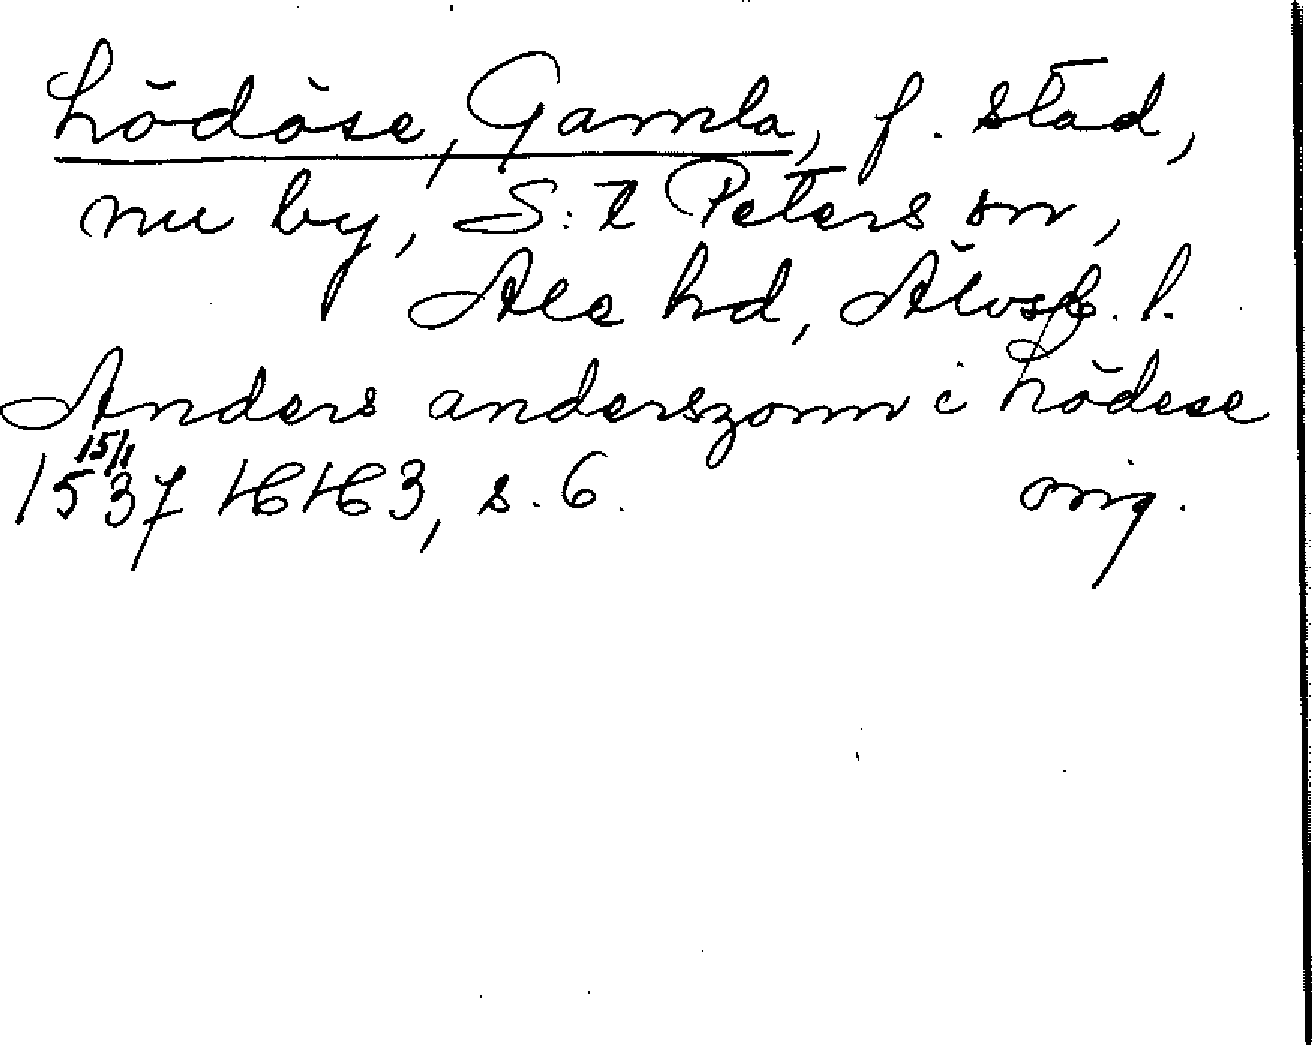 Lödöse, Gamla, f. stad,
nu by, S:t Peters sn,
Ale hd, Älvsb. l.
Anders anderszonn i Lödese
15/1
1537 HH 3, s. 6. orig.